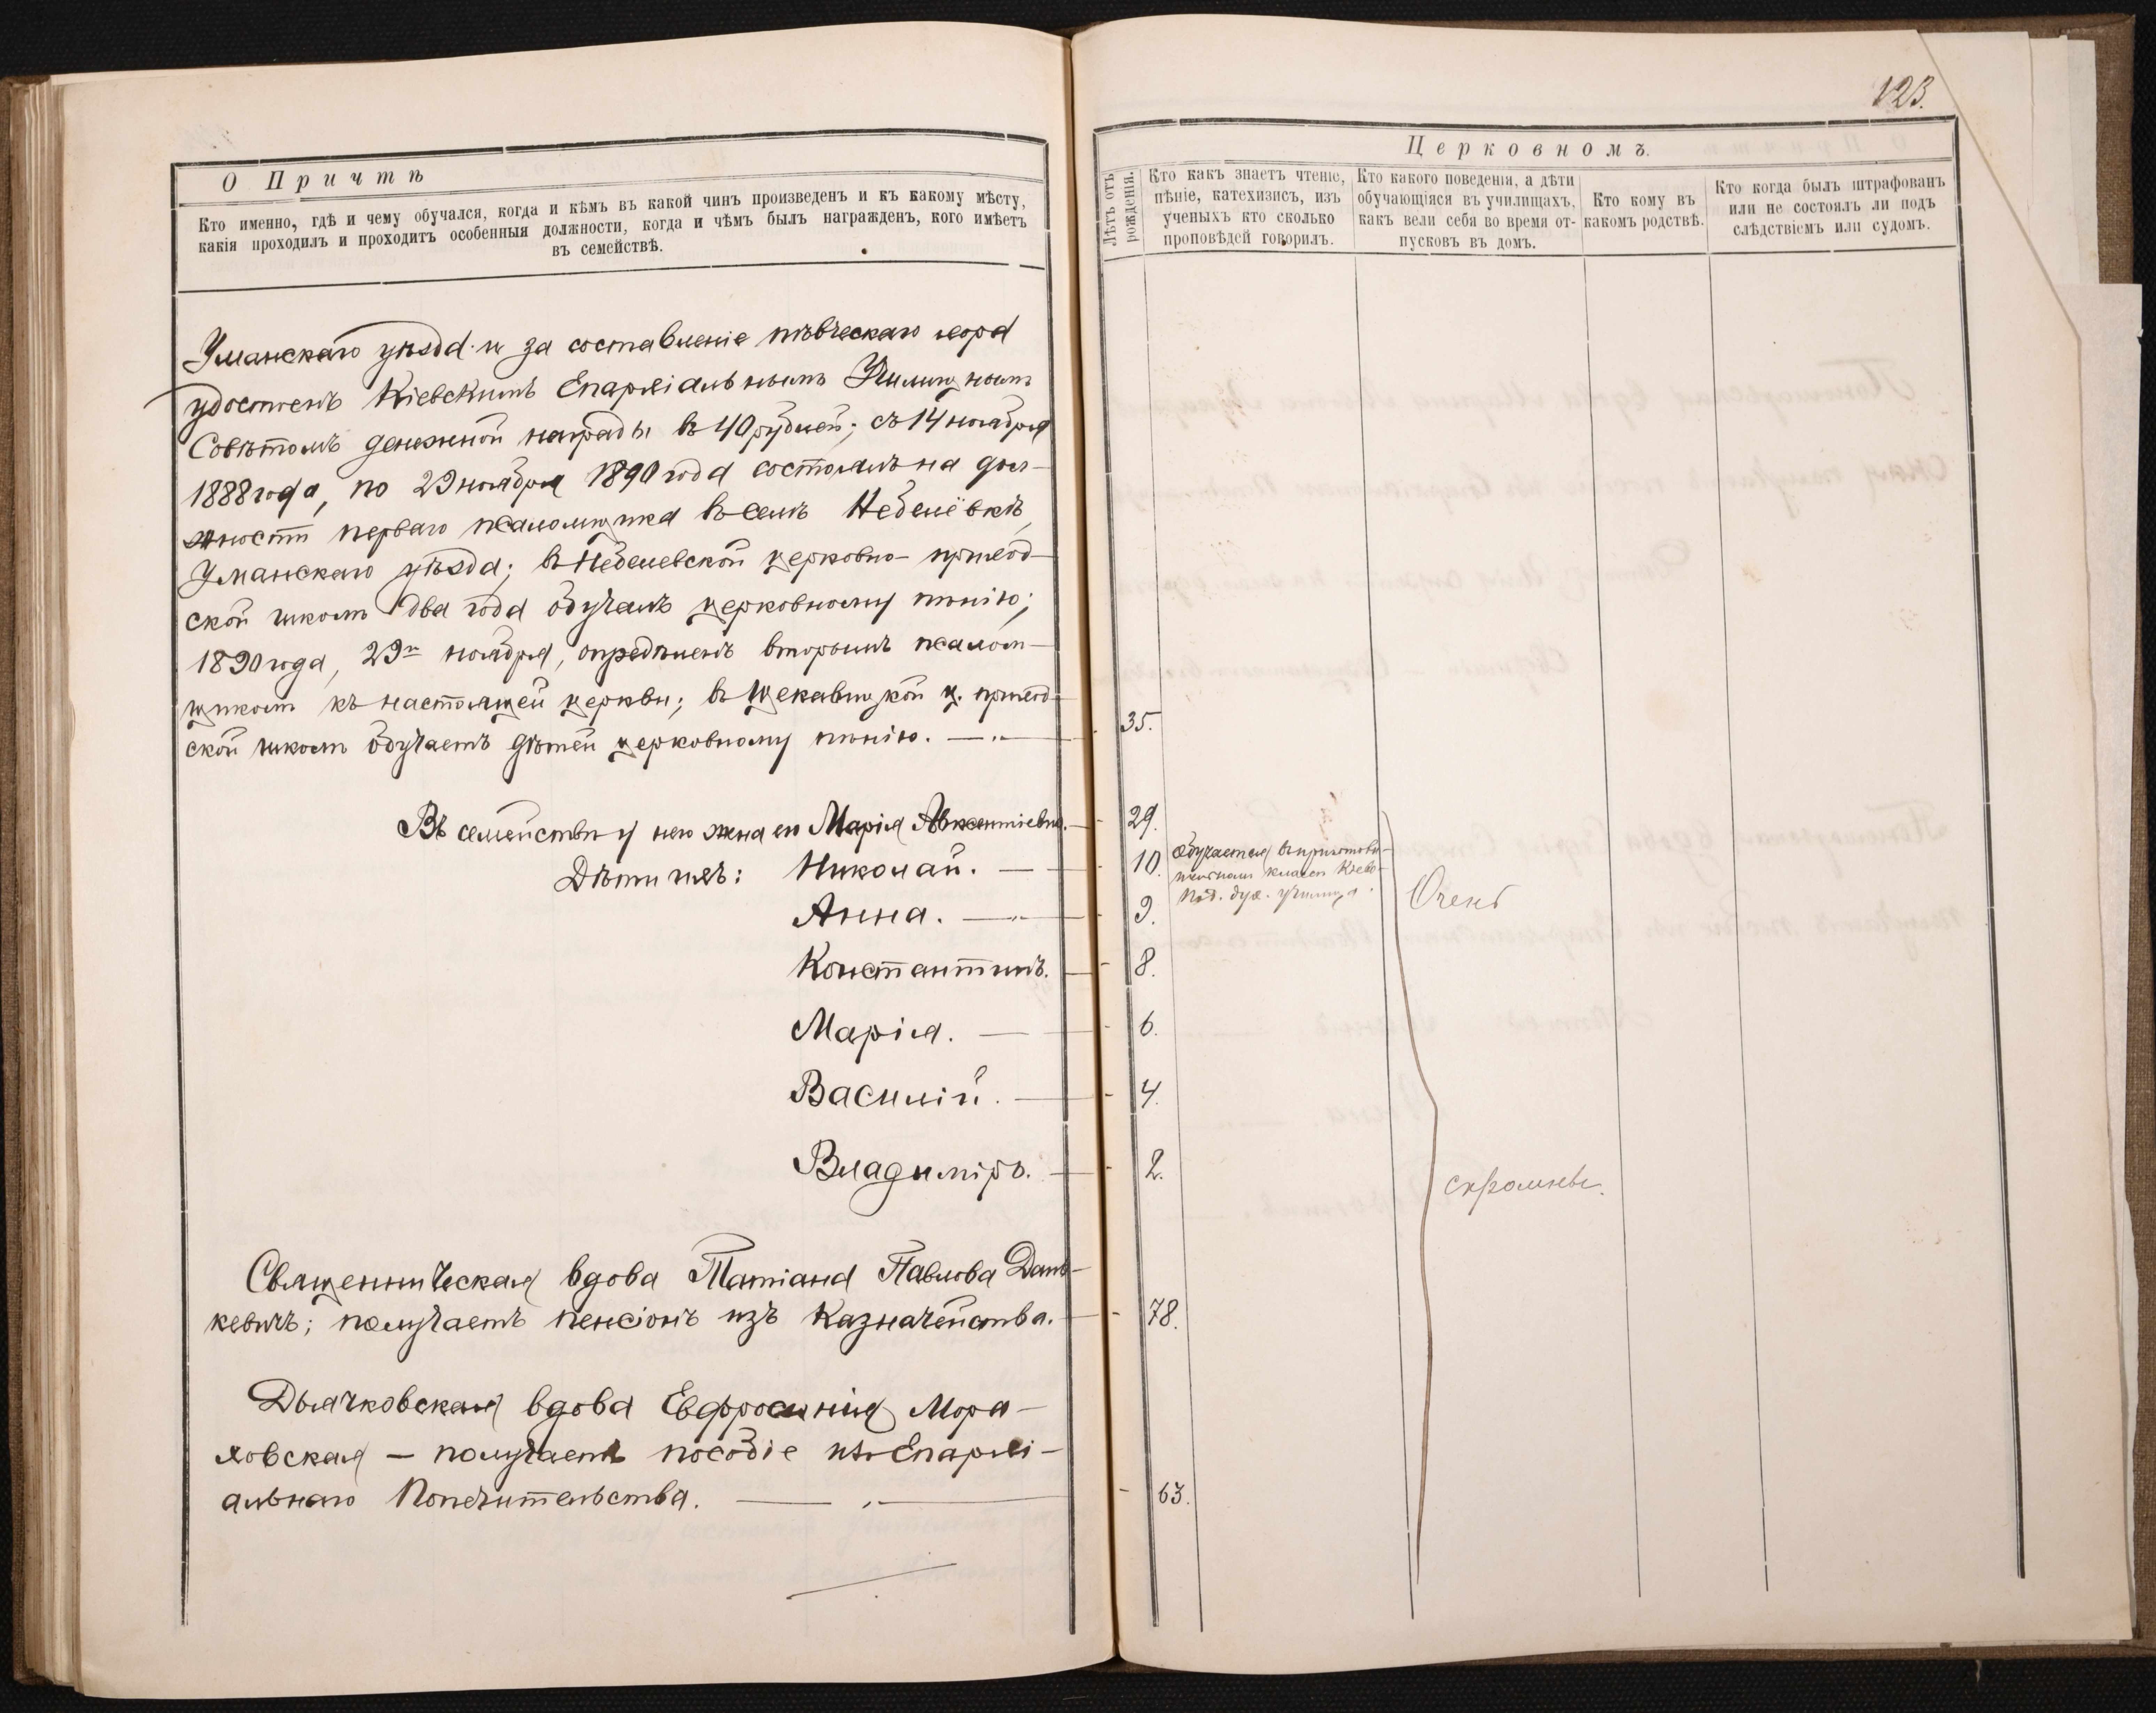 О Причтѣ
Кто именно, гдѣ и чему обучался, когда и кѣмъ въ какой чинъ произведенъ и къ какому мѣсту,
какія проходилъ и проходитъ особенныя должности, когда и чѣмъ былъ награжденъ, кого имѣетъ
въ семействѣ.
Уманскаго уѣзда и за составленіе пѣвческаго хора
удостоенъ Кіевскимъ Епархіальнымъ Училищнымъ
Совѣтомъ денежной награды въ 40 рублей; съ 14 ноября
1888 года, по 29 ноября 1890 года состоялъ на дол-
жности перваго псаломщика въ селѣ Небелёвкѣ,
Уманскаго уѣзда; въ Небелевской церковно-приход-
ской школѣ два года обучалъ церковному пѣнію;
1890 года, 29го ноября, опредѣленъ вторымъ псалом-
щикомъ къ настоящей церкви; въ Щекавицкой ц. приход-
ской школѣ обучаетъ дѣтей церковному пѣнію.
Въ семействѣ у него жена его Марія Авксентіевна.
Дѣти ихъ: Николай.
Анна.
Константинъ.
Марія.
Василій.
Владиміръ.
Священническая вдова Татіана Павлова Дань-
кевичъ; получаетъ пенсіонъ изъ Казначейства.
Дьячковская вдова Евфросинія Мора-
ховская – получаетъ пособіе изъ Епархі-
альнаго Попечительства.
123.
Церковномъ.
Лѣтъ отъ
рожденія.
Кто какъ знаетъ чтеніе,
пѣніе, катехизисъ, изъ
ученыхъ кто сколько
проповѣдей говорилъ.
Кто какого поведенія, а дѣти
обучающіяся въ училищахъ,
какъ вели себя во время от-
пусковъ въ домъ.
Кто кому въ
какомъ родствѣ.
Кто когда былъ штрафованъ
или не состоялъ ли подъ
слѣдствіемъ или судомъ.
35.
29.
10.
Обучается въ приготови-
тельномъ классѣ Кіево-
Под. дух. училища.
9.
Очень
8.
6.
4.
2.
скромны.
78.
63.